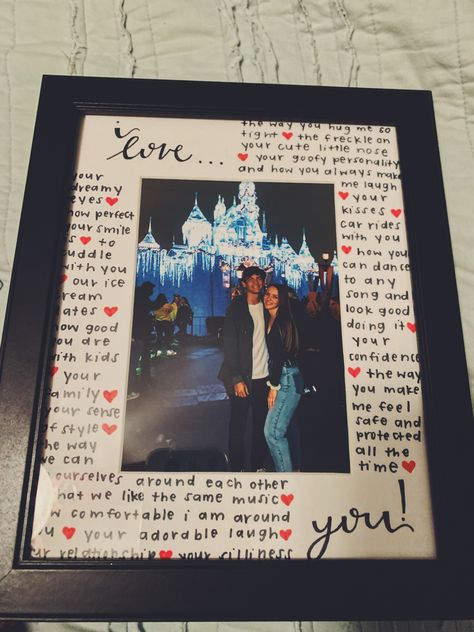 i love...
the way you hug me so
tight ♥ the freckle on
your cute little nose
♥ your goofy personality
and how you always make
me laugh
♥ your
kisses ♥
car rides
with you
♥ how you
can dance
to any
song and
look good
doing it ♥
your
confidence
♥ the way
you make
me feel
safe and
protected
all the
time ♥
your
dreamy
eyes ♥
how perfect
your smile
♥ to
cuddle
with you
♥ our ice
cream
dates ♥
how good
you are
with kids
♥ your
family ♥
your sense
of style ♥
the way
we can
ourselves around each other
that we like the same music ♥
how comfortable i am around
♥ your adorable laugh ♥
our relationship ♥ your silliness
you!